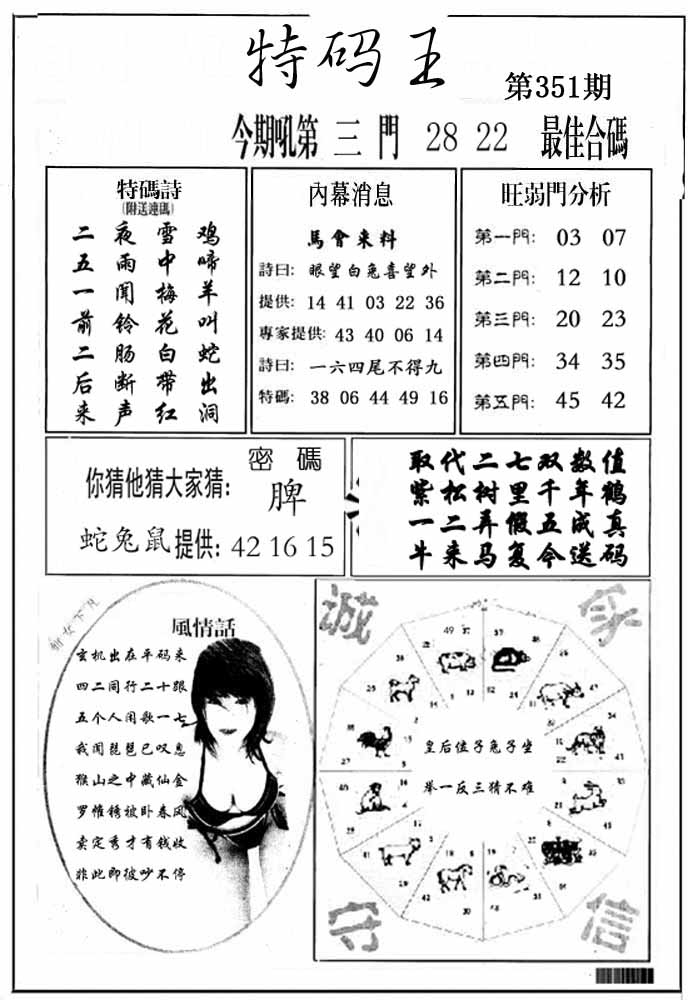 特码王
第351期
今期吼第 三 門 28 22 最佳合碼
特碼詩
(附送連碼)
二夜雪鸡
五雨中啼
一闻梅羊
前铃花叫
二肠白蛇
后断带出
来声红洞
內幕消息
馬會来料
詩曰: 眼望白兔喜望外
提供: 14 41 03 22 36
專家提供: 43 40 06 14
詩曰: 一六四尾不得九
特碼: 38 06 44 49 16
旺弱門分析
第一門: 03 07
第二門: 12 10
第三門: 20 23
第四門: 34 35
第五門: 45 42
密碼
你猜他猜大家猜:
脾
蛇兔鼠提供: 42 16 15
取代二七双数值
紫松树里千年鹤
一二弄假五成真
牛来马复今送码
風情話
玄机出在平码来
四二同行二十跟
五个人闲歌一七
我闻琵琶已叹息
猴山之中藏仙金
罗帷锈被卧春风
卖定秀才有钱收
非此即彼吵不停
诚
守
信
皇后位子兔子坐
举一反三猜不难